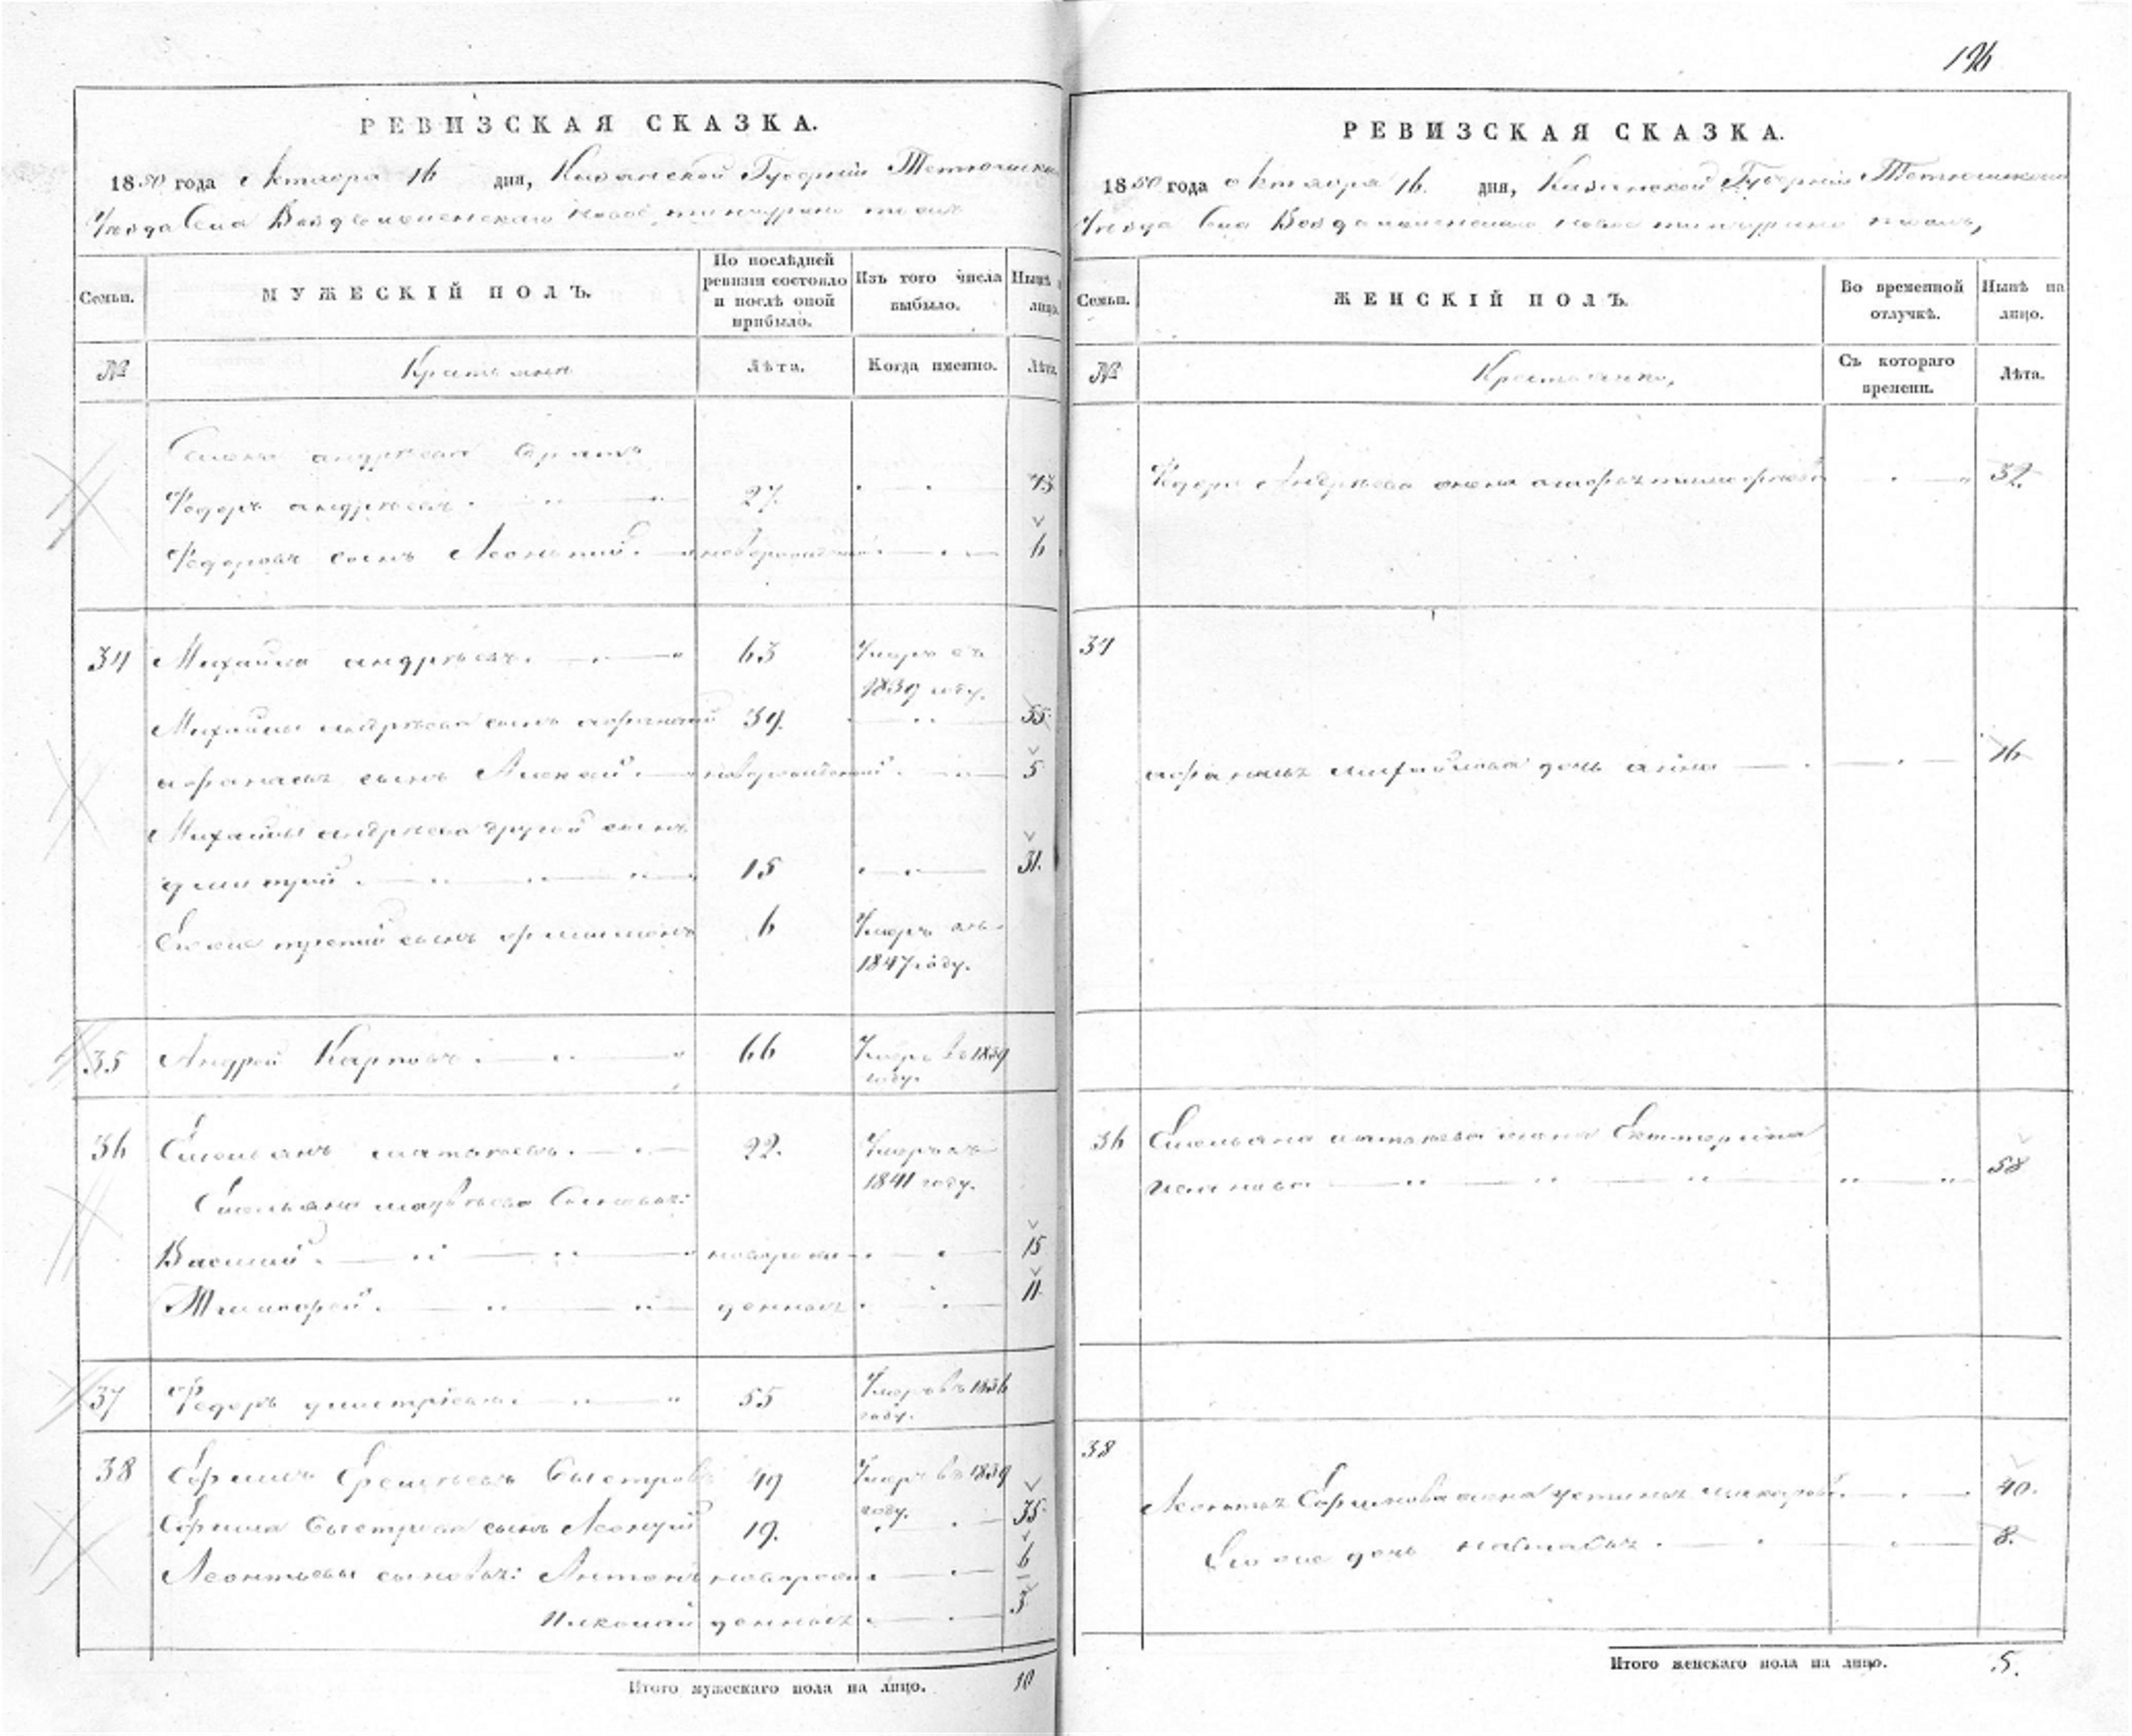 196
РЕВИЗСКАЯ СКАЗКА.
1850 года октября 16 дня, Казанской Губернии
Уезда Села Воздвиженского
Семьи.
МУЖЕСКІЙ ПОЛЪ.
По послѣдней ревизіи состояло и послѣ оной прибыло.
Изъ того числа выбыло.
Нынѣ лицо.
№
Крестьяне
Лѣта.
Когда именно.
Лѣта.
андреева братъ
Федоръ андреевъ 27. 43
Федоровъ сынъ Леонтий новорожденный 6
34 Михайла андреевъ 63 Умеръ въ
1839 году.
Михайлы андреева сынъ афанасий 39. 55
афанасьевъ сынъ новорожденный 5
Михайлы андреева другой сынъ
дмитрий 15 31.
Его же третий сынъ 6 Умеръ въ
1847 году.
35 Андрей Карповъ 66 Умеръ въ 1839
году.
36 Емельянъ матвеевъ 22. Умеръ въ
1841 году.
Емельяна матвеева сыновья:
Василий новорож 15
Тимофей денные 11
37 Федоръ дмитриевъ 55 Умеръ въ 1836
году.
38 Ефимъ Еремеевъ быстровъ 49 Умеръ въ 1839
году.
Ефима быстрова сынъ 19. 35
Леонтьевы сыновья: Антонъ новорож 6
Николай денные 3
Итого мужескаго пола на лицо. 10
РЕВИЗСКАЯ СКАЗКА.
1850 года октября 16. дня, Казанской Губернии
Уезда Села Воздвиженского
Семьи.
ЖЕНСКІЙ ПОЛЪ.
Во временной отлучкѣ.
Нынѣ на лицо.
№
Крестьянки,
Съ котораго времени.
Лѣта.
Федора Андреева жена 32.
34
афанасья михайлова дочь анна 16
36 Емельяна матвеева жена Екатерина
58
38
Леонтья Ефимова жена устинья макарова 40.
Его же дочь наталья 8.
Итого женскаго пола на лицо. 5.